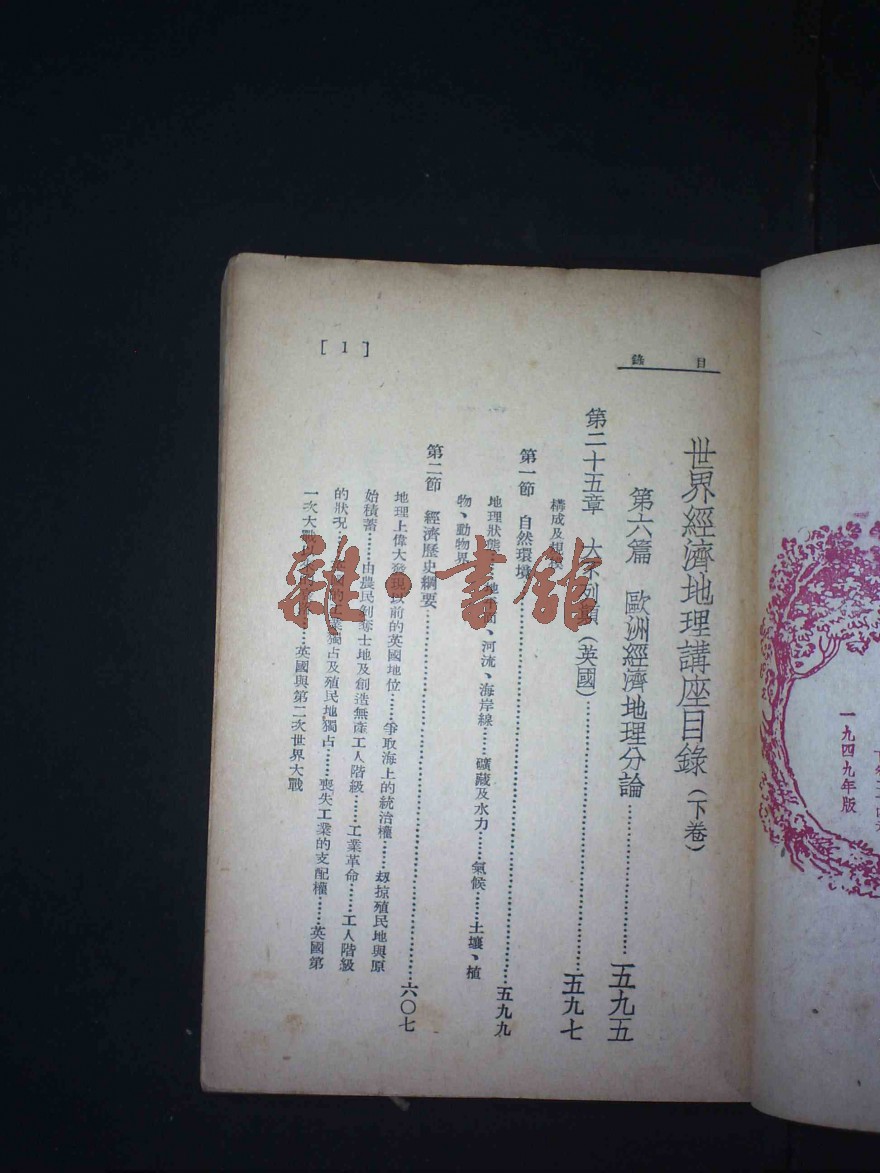 目錄
世界經濟地理講座目錄(下卷)
第六篇 歐洲經濟地理分論……五九五
第二十五章 大不列顛(英國)……五九七
構成及
第一節 自然環境……五九九
地理狀態……地、河流、海岸線……礦藏及水力……氣候……土壤、植
物、動物界
第二節 經濟歷史綱要……六〇七
地理上偉大發現以前的英國地位……爭取海上的統治權……刼掠殖民地與原
始積蓄……由農民剝奪土地及創造無產工人階級……工業革命……工人階級
的狀況……英國的工業獨占及殖民地獨占……喪失工業的支配權……英國第
一次大戰……英國與第二次世界大戰
[1]
一九四九年版
雜·書館